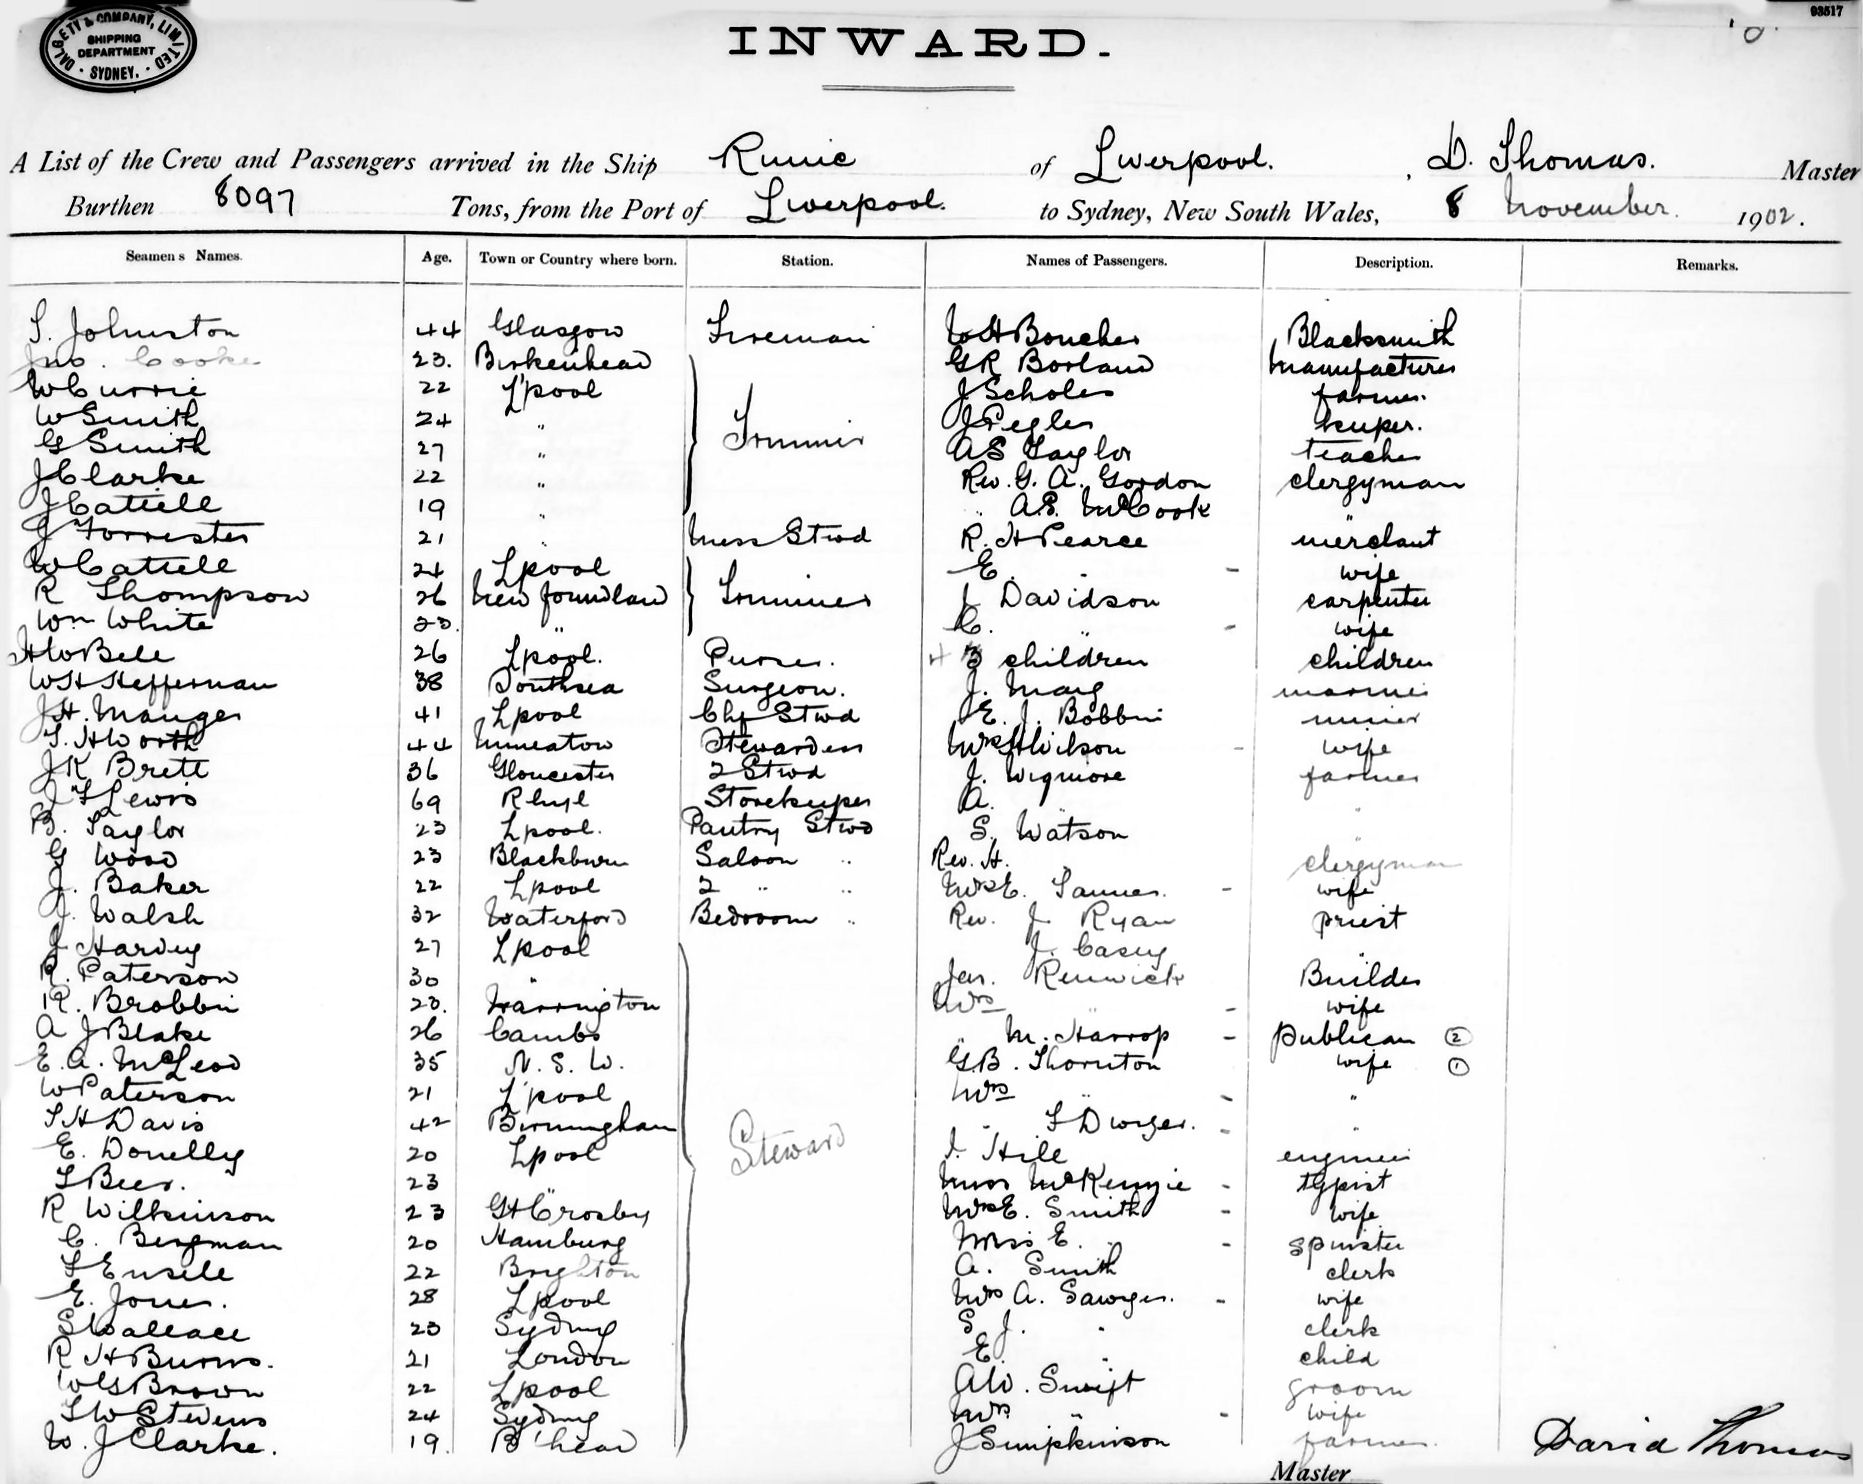 DALGETY & COMPANY, LIMITED
SHIPPING
DEPARTMENT
SYDNEY.
93517
INWARD.
A List of the Crew and Passengers arrived in the Ship Runic of Liverpool. , D. Thomas. Master
Burthen 8097 Tons, from the Port of Liverpool. to Sydney, New South Wales, 8 November. 1902.
Seamen s Names. Age. Town or Country where born. Station. Names of Passengers. Description. Remarks.
T. Johnston 44 Glasgow Fireman W H Boucher Blacksmith
Jno. Cooke 23. Birkenhead G R Borland Manufacturer
W Currie 22 L'pool J Scholes farmer.
W Smith 24 " Trimmer J Pegler keeper.
G Smith 27 " A S Taylor teacher
J Clarke 22 " Rev. G. A. Gordon clergyman
J Cattell 19 " " A.S. McCook "
J Forrester 21 " Mess Stwd R. H Pearce merchant
W Cattell 24 Lpool E. " - wife
R Thompson 26 New foundland Trimmer J Davidson carpenter
Wm White 23. " C. " - wife
H W Bell 26 Lpool. Purser. 4 3 children children
W H Heffernan 38 Southsea Surgeon. J. Marg mariner
J H. Manger 41 Lpool Chf Stwd E. J. Bobbin miner
T. H Worth 44 Nuneaton Stewardess Mrs H Wilson - wife
J K Brett 36 Gloucester 2 Stwd J. Wigmore farmer
J T Lewis 69 Rhyl Storekeeper A. " "
B. Taylor 23 Lpool. Pantry Stwd S. Watson "
G Wood 23 Blackburn Saloon " Rev. H. clergyman
J. Baker 22 Lpool 2 " " Mrs E. Tanner. - wife
J. Walsh 32 Waterford Bedroom " Rev. J. Ryan priest
J Harvey 27 Lpool J. Casey "
R. Paterson 30 " Jas. Renwick Builder
R. Brobbin 23. Warrington Mrs " - wife
A J Blake 26 Cambs " M. Harrop - publican 2
E. A. McLeod 35 N. S. W. G. B. Thornton wife 1
W Paterson 21 L'pool Mrs " - "
T H Davis 42 Birmingham " F Dwyer. - "
E. Donelly 20 Lpool Steward J. Hill engineer
T Beer. 23 " Miss McKenzie - typist
R Wilkinson 23 Gt Crosby Mrs E. Smith - wife
C. Bergman 20 Hamburg Miss E. " - spinster
F Ensell 22 Brighton A. Smith clerk
E. Jones. 28 Lpool Mrs A. Sawyer. - wife
S Wallace 23 Sydney S J. " clerk
R H Burns. 21 London E. " child
W G Brown 22 Lpool A W. Swift groom
T W Stevens 24 Sydney Mrs " - wife
W. J Clarke. 19. B'head J Simpkinson farmer.
David Thomas
Master